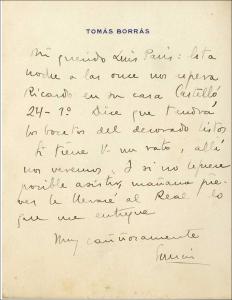 TOMÁS BORRÁS
Mi querido Luis París: Esta
noche a las once nos espera
Ricardo en su casa Castelló
24-1º Dice que tendrá
los bocetos del decorado listos
Si tiene V. un rato, allí
nos veremos. Y si no le parece
posible asistir, mañana jue-
ves le llevaré al Real lo
que me entregue
Muy cariñosamente